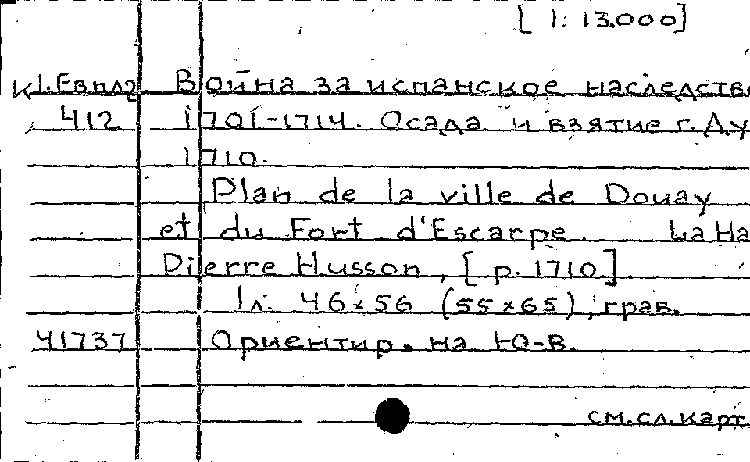 [ 1: 13.000]
К 1.Евпл2 Война за испанское наследств
412 1701-1714. Осада и взятие г. Ду
1710.
Plan de la ville de Douay
et du Fort d'Escarpe. La Ha
Pierre Husson, [ p. 1710]
1л. 46×56 (55×65), грав.
41737 Ориентир. на Ю-В.
см.сл.карт